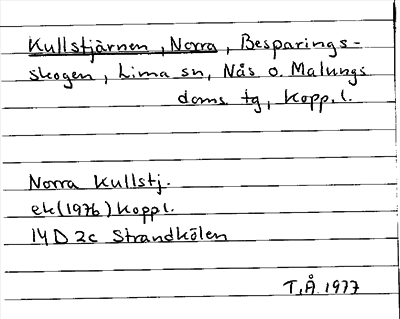 Kullstjärnen, Norra, Besparings-
skogen, Lima sn, Nås o. Malungs
doms tg, Kopp. l.
Norra Kullstj.
ek (1976) Koppl.
14 D 2c Strandkölen
T.Å 1977